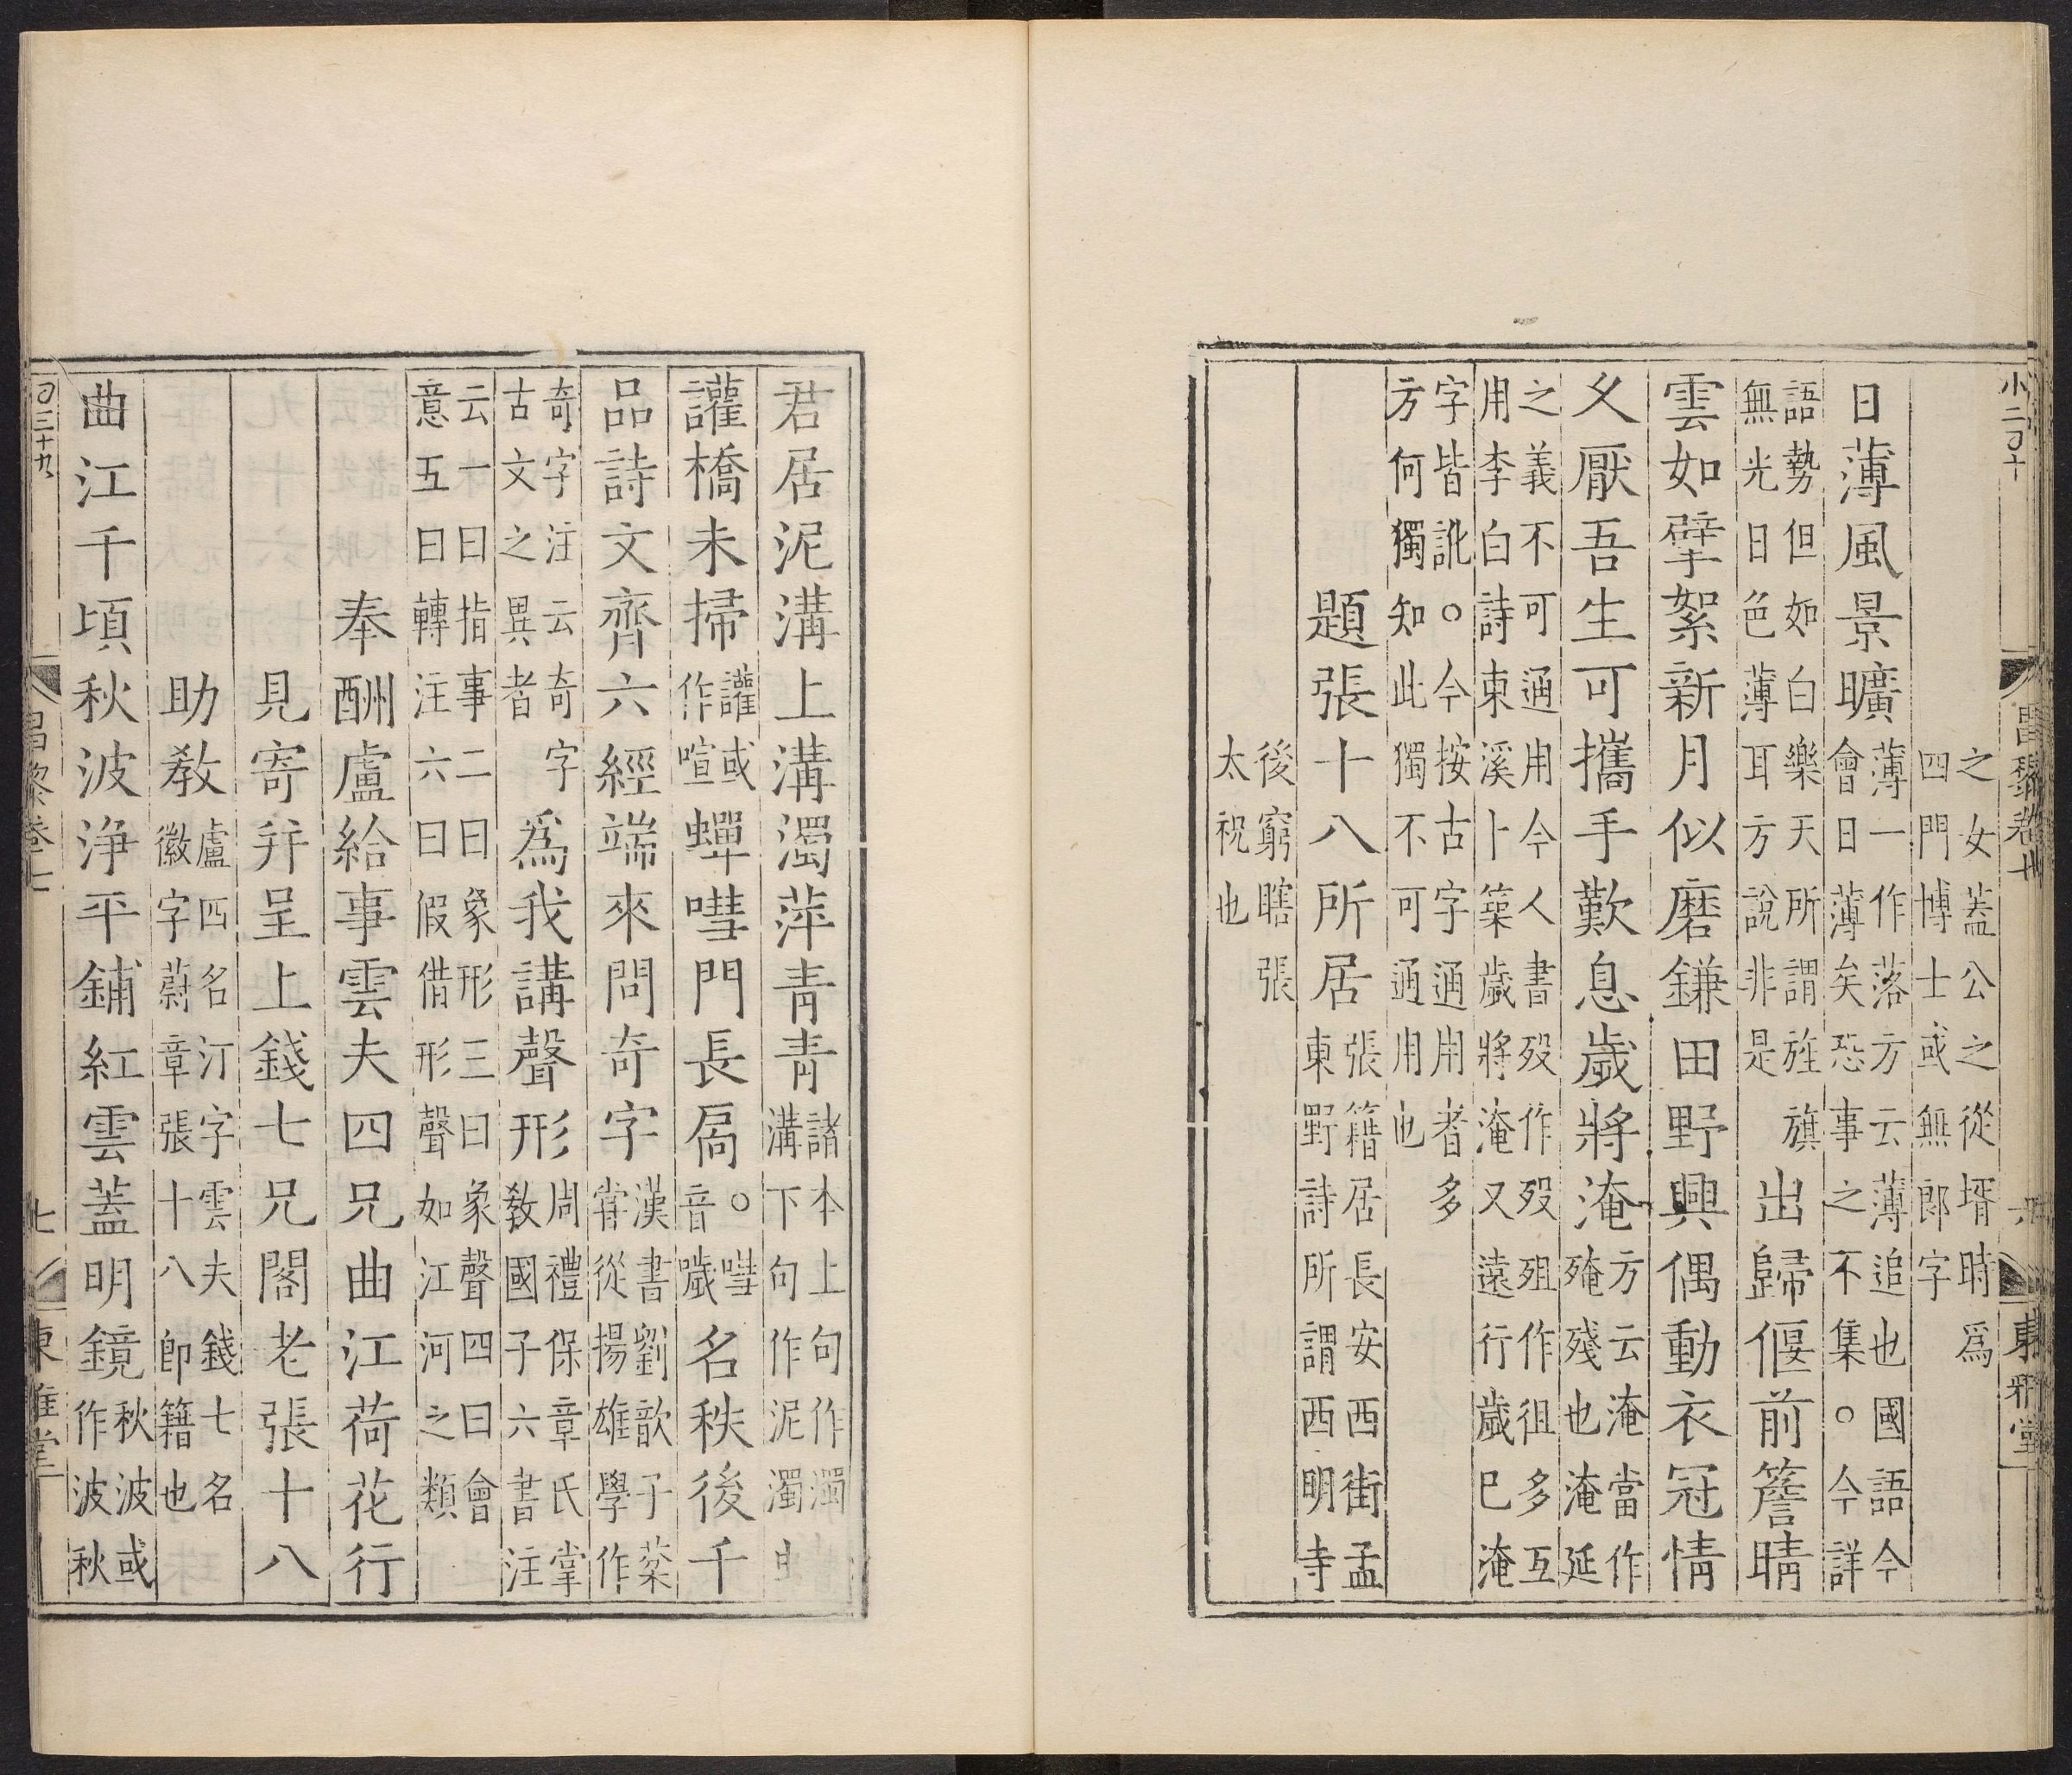 小二百十 昌黎卷七 六 東雅堂
之女蓋公之從壻時爲
四門博士或無郎字
日薄風景曠薄一作落方云薄追也國語今
會日薄矣恐事之不集○今詳
語勢但如白樂天所謂旌旗
無光日色薄耳方說非是出歸偃前簷晴
雲如擘絮新月似磨鎌田野興偶動衣冠情
久厭吾生可攜手歎息歲將淹方云淹當作
殗殘也淹延
之義不可通用今人書歿作歿殂作徂多互
用李白詩東溪卜築歲將淹又遠行歲已淹
字皆訛○今按古字通用者多
方何獨知此獨不可通用也
題張十八所居張籍居長安西街孟
東野詩所謂西明寺
後窮瞎張
太祝也
君居泥溝上溝濁萍青青諸本上句作濁
溝下句作泥濁
讙橋未掃讙或
作喧蟬嘒門長扃○嘒
音嘒名秩後千
品詩文齊六經端來問奇字漢書劉歆子棻
嘗從揚雄學作
奇字注云奇字
古文之異者爲我講聲形周禮保章氏掌
教國子六書注
云一曰指事二曰象形三曰象聲四曰會
意五曰轉注六曰假借形聲如江河之類
奉酬盧給事雲夫四兄曲江荷花行
見寄并呈上錢七兄閣老張十八
助教盧四名汀字雲夫錢七名
徽字蔚章張十八即籍也
曲江千頃秋波淨平鋪紅雲蓋明鏡秋波或
作波秋
三十九 昌黎卷七 七 東雅堂